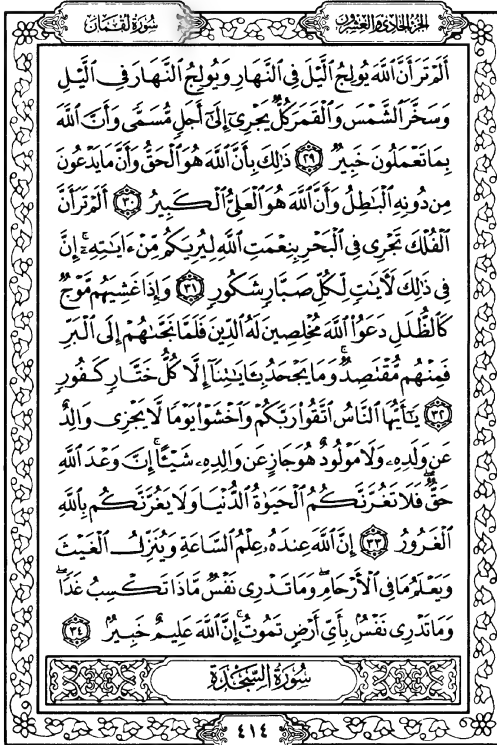 الجزء الحادي والعشرون
سورة لقمان
أَلَمْ تَرَ أَنَّ ٱللَّهَ يُولِجُ ٱلَّيْلَ فِى ٱلنَّهَارِ وَيُولِجُ ٱلنَّهَارَ فِى ٱلَّيْلِ
وَسَخَّرَ ٱلشَّمْسَ وَٱلْقَمَرَ كُلٌّ يَجْرِىٓ إِلَىٰٓ أَجَلٍ مُّسَمًّى وَأَنَّ ٱللَّهَ
بِمَا تَعْمَلُونَ خَبِيرٌ ٢٩ ذَٰلِكَ بِأَنَّ ٱللَّهَ هُوَ ٱلْحَقُّ وَأَنَّ مَا يَدْعُونَ
مِن دُونِهِ ٱلْبَٰطِلُ وَأَنَّ ٱللَّهَ هُوَ ٱلْعَلِىُّ ٱلْكَبِيرُ ٣٠ أَلَمْ تَرَ أَنَّ
ٱلْفُلْكَ تَجْرِى فِى ٱلْبَحْرِ بِنِعْمَتِ ٱللَّهِ لِيُرِيَكُم مِّنْ ءَايَٰتِهِۦٓ إِنَّ
فِى ذَٰلِكَ لَءَايَٰتٍ لِّكُلِّ صَبَّارٍ شَكُورٍ ٣١ وَإِذَا غَشِيَهُم مَّوْجٌ
كَٱلظُّلَلِ دَعَوُا۟ ٱللَّهَ مُخْلِصِينَ لَهُ ٱلدِّينَ فَلَمَّا نَجَّىٰهُمْ إِلَى ٱلْبَرِّ
فَمِنْهُم مُّقْتَصِدٌ وَمَا يَجْحَدُ بِـَٔايَٰتِنَآ إِلَّا كُلُّ خَتَّارٍ كَفُورٍ
٣٢ يَٰٓأَيُّهَا ٱلنَّاسُ ٱتَّقُوا۟ رَبَّكُمْ وَٱخْشَوْا۟ يَوْمًا لَّا يَجْزِى وَالِدٌ
عَن وَلَدِهِۦ وَلَا مَوْلُودٌ هُوَ جَازٍ عَن وَالِدِهِۦ شَيْـًٔا إِنَّ وَعْدَ ٱللَّهِ
حَقٌّ فَلَا تَغُرَّنَّكُمُ ٱلْحَيَوٰةُ ٱلدُّنْيَا وَلَا يَغُرَّنَّكُم بِٱللَّهِ
ٱلْغَرُورُ ٣٣ إِنَّ ٱللَّهَ عِندَهُۥ عِلْمُ ٱلسَّاعَةِ وَيُنَزِّلُ ٱلْغَيْثَ
وَيَعْلَمُ مَا فِى ٱلْأَرْحَامِ وَمَا تَدْرِى نَفْسٌ مَّاذَا تَكْسِبُ غَدًا
وَمَا تَدْرِى نَفْسٌۢ بِأَىِّ أَرْضٍ تَمُوتُ إِنَّ ٱللَّهَ عَلِيمٌ خَبِيرٌۢ ٣٤
سُورَةُ السَّجْدَةِ
٤١٤